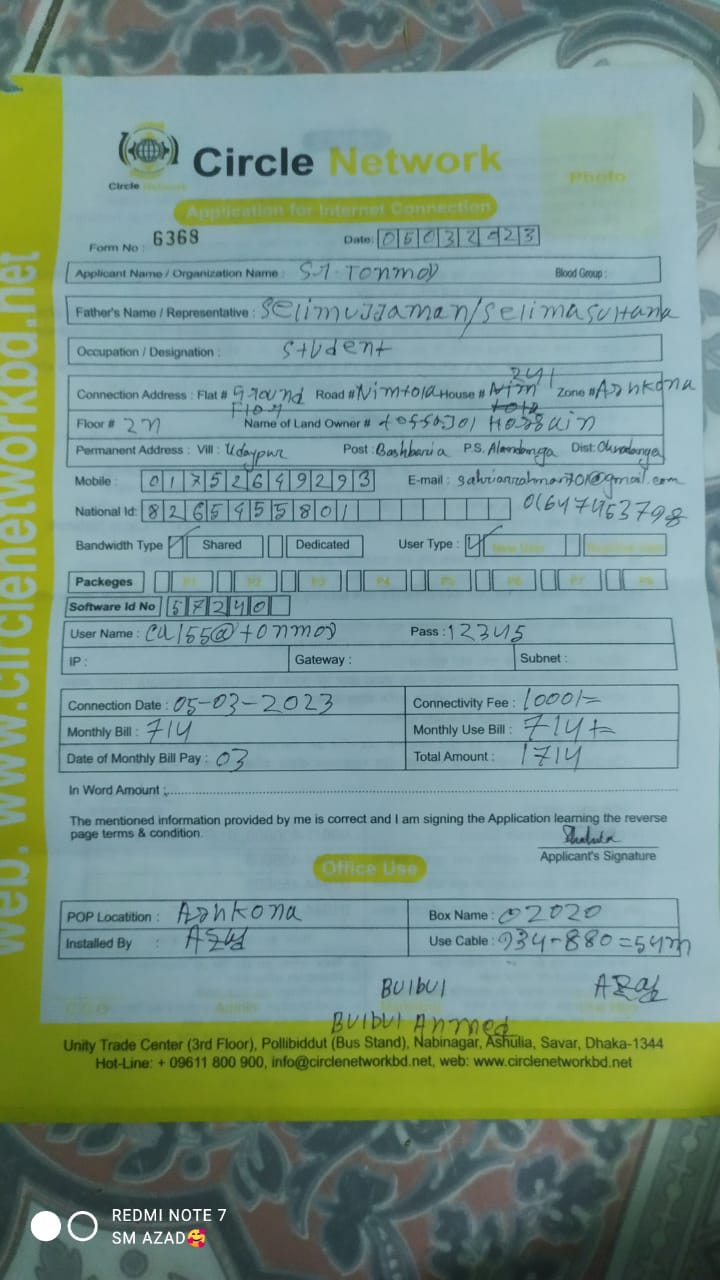 Circle Network
Circle Network
Photo
Application for Internet Connection
Form No : 6368
Date: 05032023
Applicant Name / Organization Name : S.M TONMOY Blood Group :
Father's Name / Representative : Selimuzzaman/Selimasultana
Occupation / Designation : Student
Connection Address : Flat # Ground Floor Road # Nimtola House # 241 Zone # Ashkona
Floor # Name of Land Owner # Hossain
Permanent Address : Vill : Udaypur Post : Bashbaria P.S. Alamdanga Dist:
Mobile : 01752649293 E-mail :
National Id: 8265455801
Bandwidth Type Shared Dedicated User Type : New User
Packeges P1 P2 P3 P4 P5 P6 P7 P8
Software Id No 57240
User Name : Pass : 12345
IP : Gateway : Subnet :
Connection Date : 05-03-2023 Connectivity Fee : 1000/=
Monthly Bill : 714 Monthly Use Bill : 714/=
Date of Monthly Bill Pay : 03 Total Amount : 1714
In Word Amount :
The mentioned information provided by me is correct and I am signing the Application learning the reverse
page terms & condition.
Applicant's Signature
Office Use
POP Locatition : Ashkona Box Name : 02020
Installed By : Use Cable : 934-880=54m
Bulbul
Bulbul Ahmed
Unity Trade Center (3rd Floor), Pollibiddut (Bus Stand), Nabinagar, Ashulia, Savar, Dhaka-1344
Hot-Line: + 09611 800 900, info@circlenetworkbd.net, web: www.circlenetworkbd.net
web. www.circlenetworkbd.net
REDMI NOTE 7
SM AZAD🥰